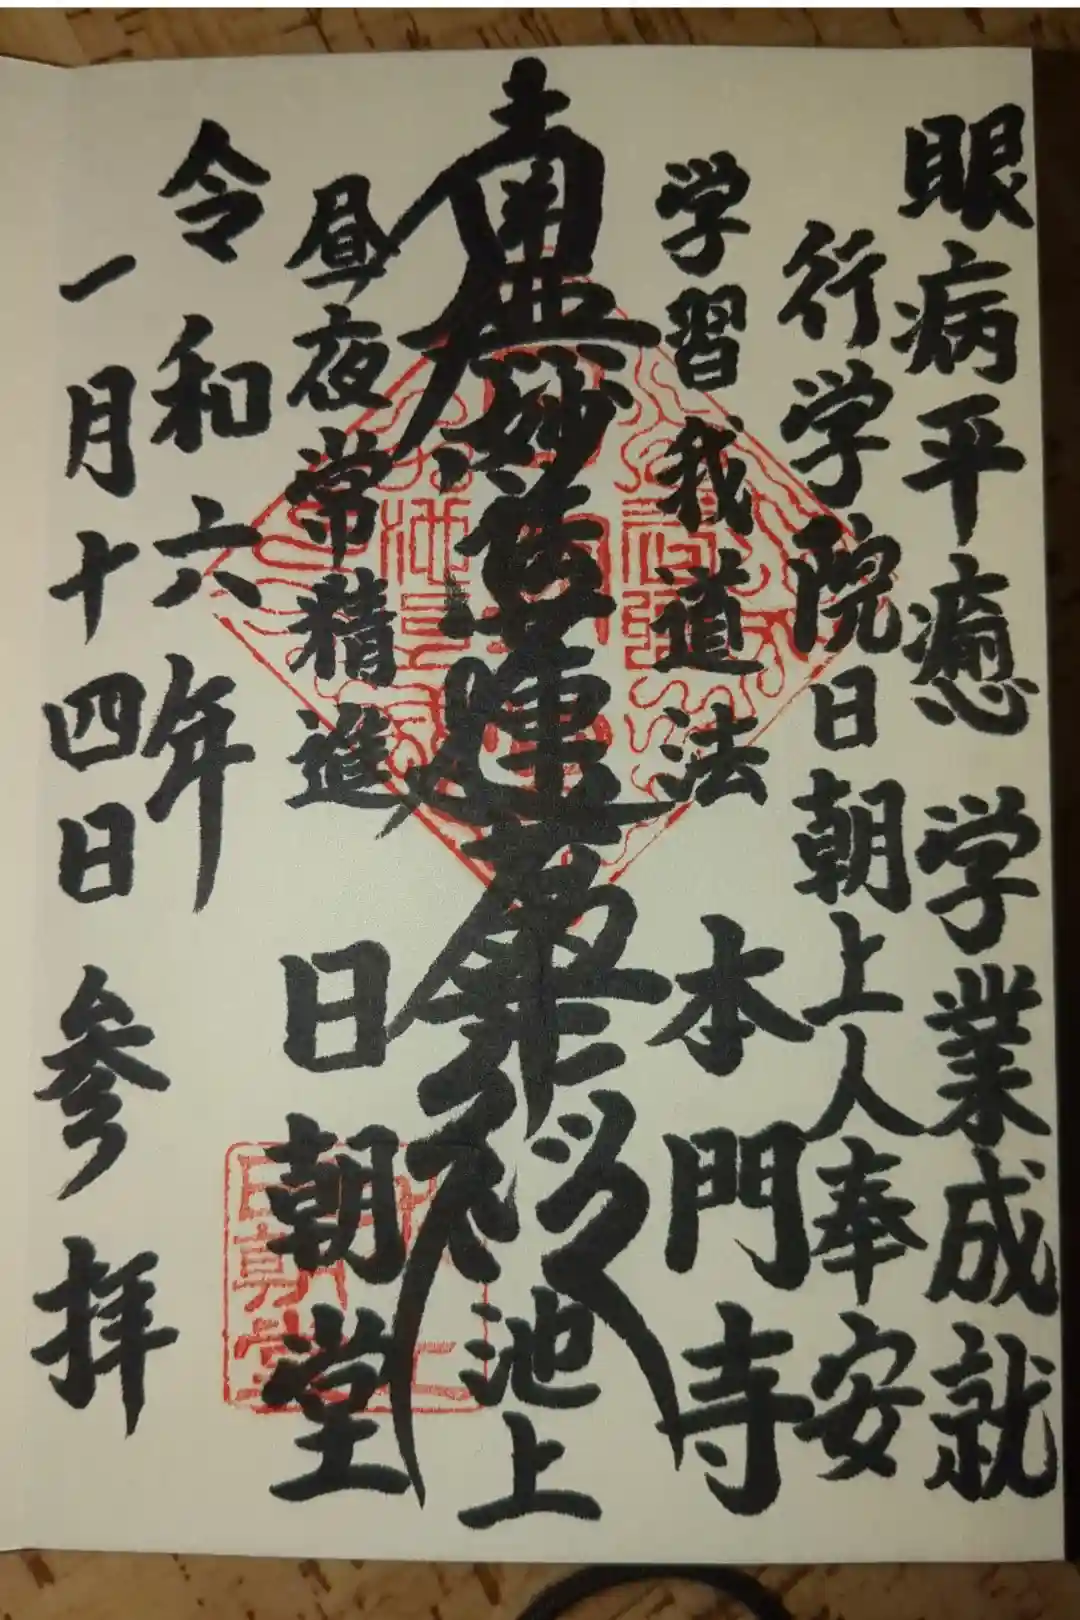 眼病平癒 学業成就
行学院日朝上人奉安
学習我道法
本門寺
南無妙法蓮華経
池上
昼夜常精進
日朝堂
令和六年
一月十四日参拝